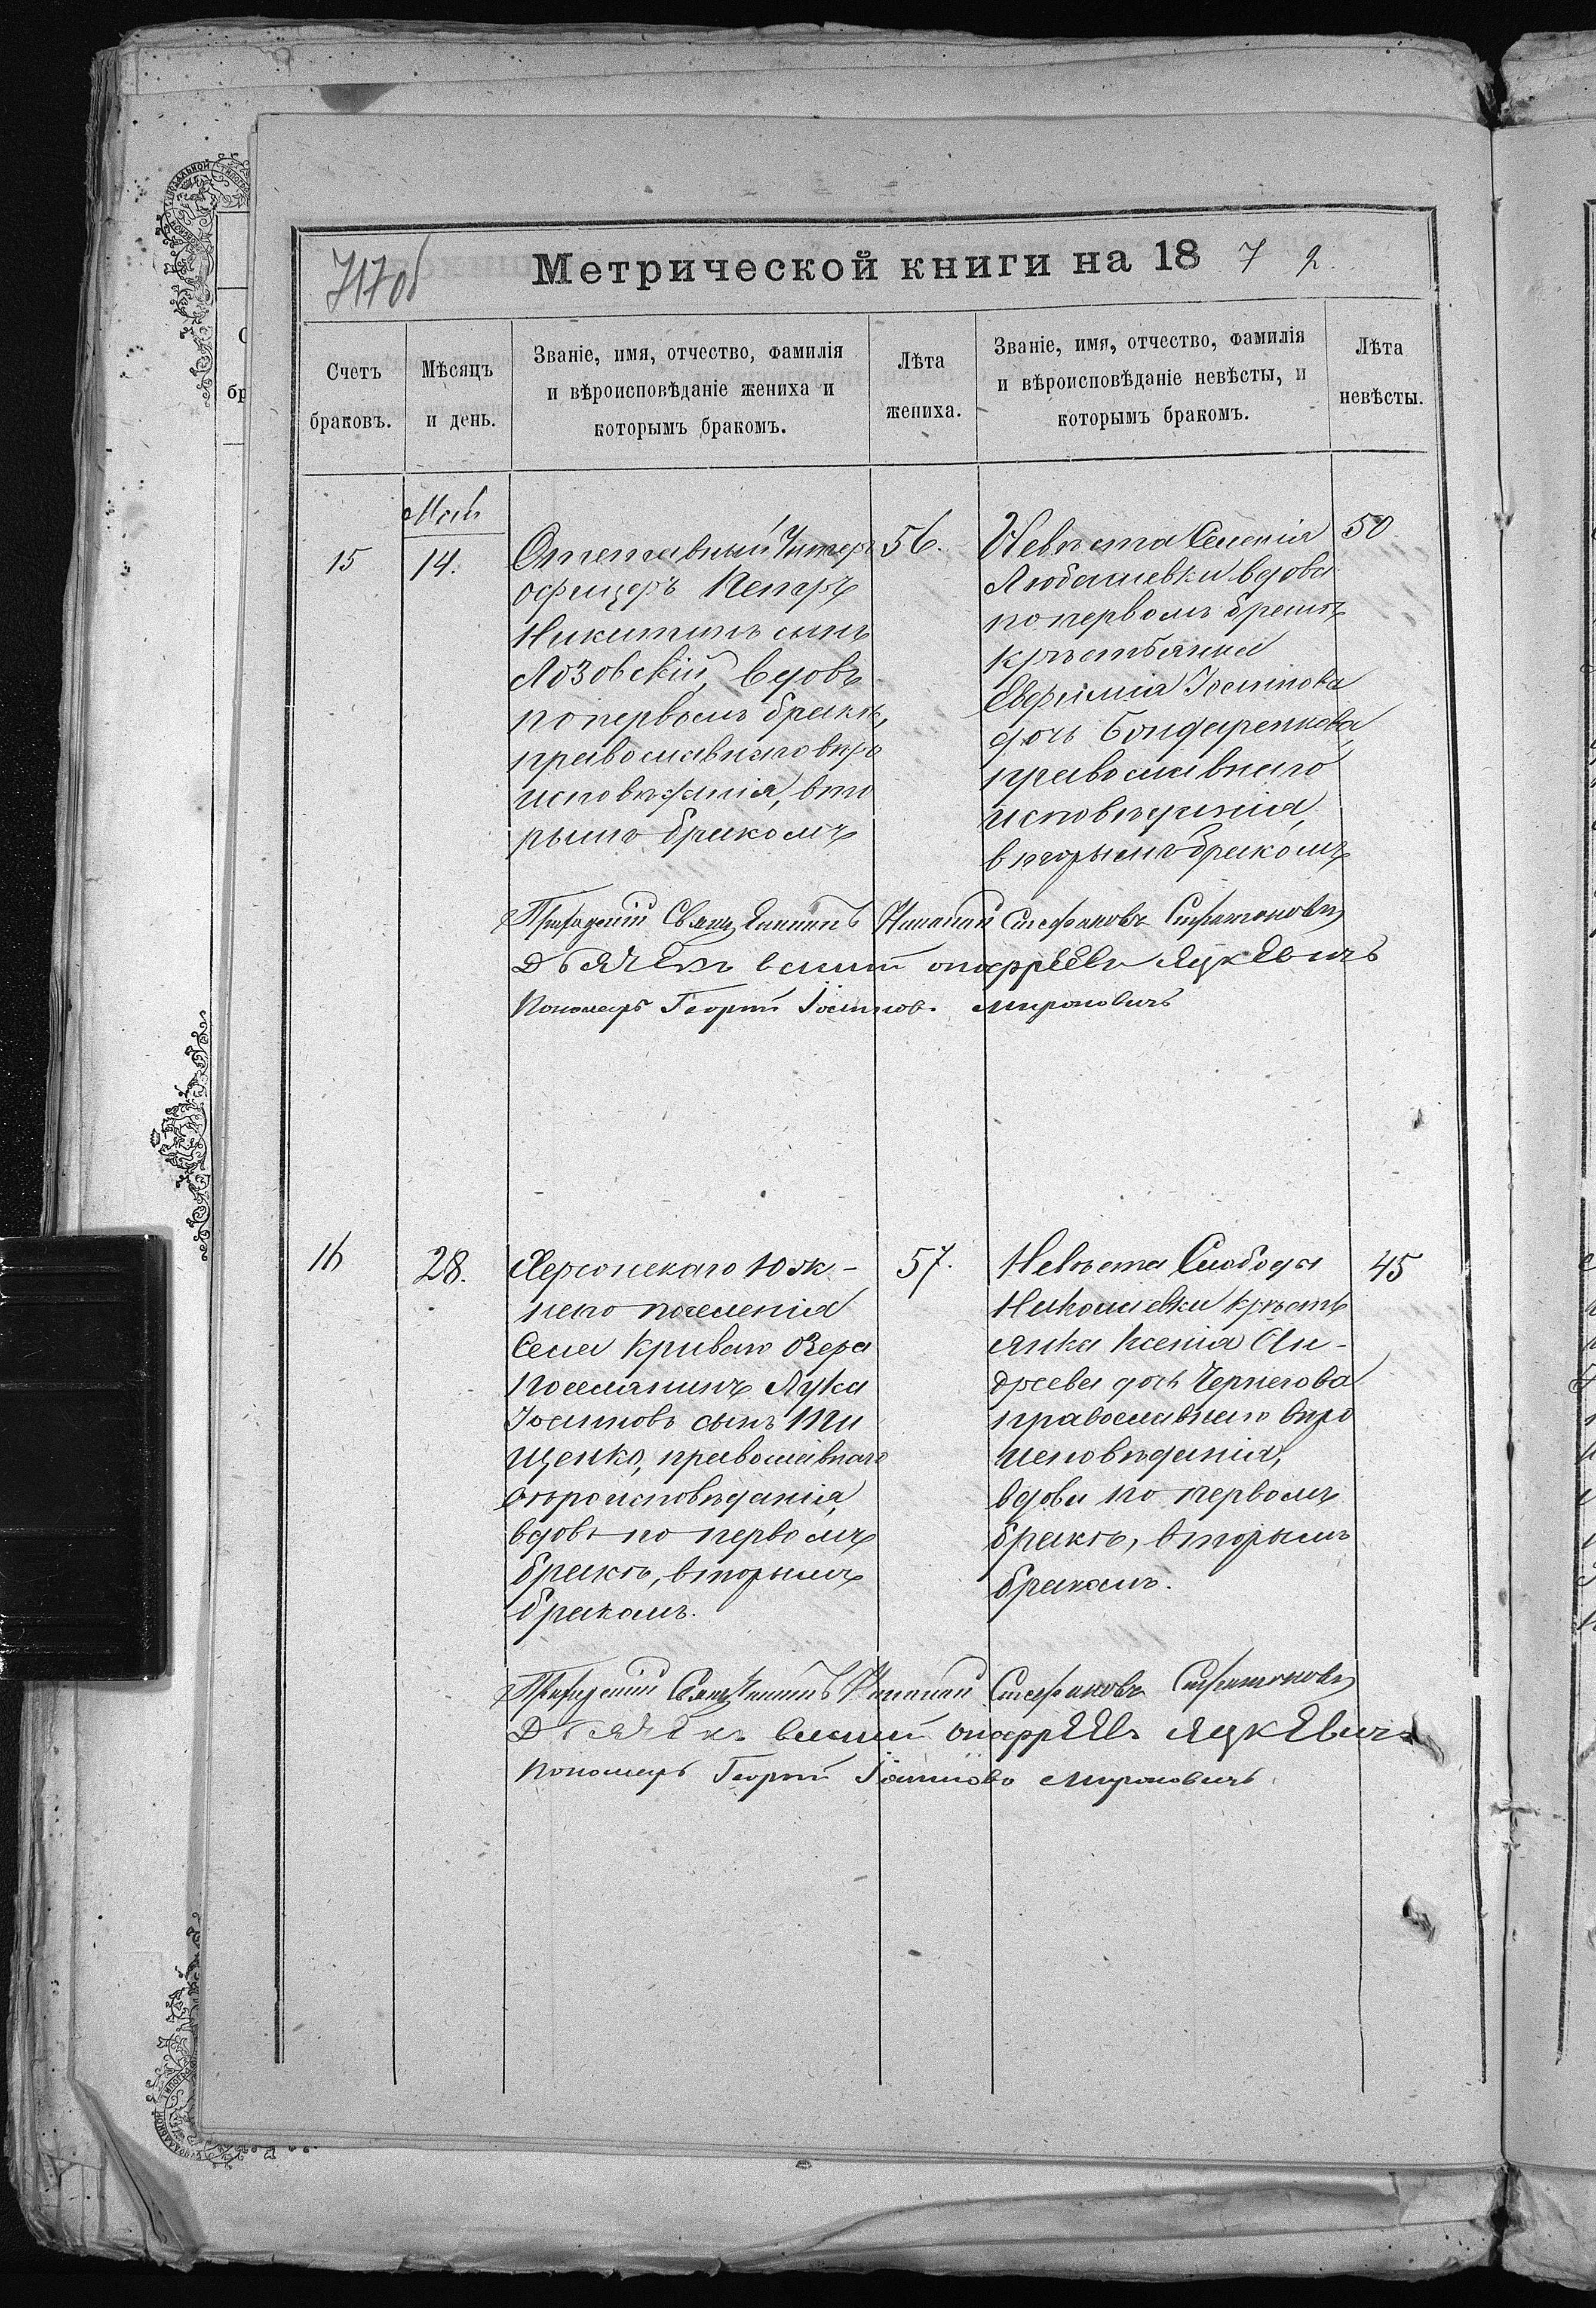 717об
Метрической книги на 1872.
Счетъ браковъ.
Мѣсяцъ и день.
Званіе, имя, отчество, фамилія
и вѣроисповѣданіе жениха и
которымъ бракомъ.
Лѣта жениха.
Званіе, имя, отчество, фамилія
и вѣроисповѣданіе невѣсты, и
которымъ бракомъ.
Лѣта невѣсты.
Май
15
14.
Отставный Унтеръ
офицеръ Петръ
Никитинъ сынъ
Лозовскій, вдовъ
по первомъ бракѣ,
православнаго вѣро
исповѣданія, вто
рымъ бракомъ
56.
Невѣста Селенія
Любашевки вдова
по первомъ бракѣ
крѣстьянка
Евфимія Іоаннова
дочь Бондаренкова,
православнаго
исповѣданія,
вторымъ бракомъ
50.
Приходскій Священникъ Стефановъ
Дьячекъ Яцкевичъ
Пономарь Георгій Іоанновъ Мироновичъ
16
28.
Херсонскаго Юж-
наго поселенія
Села Кривого Озера
Поселянинъ Лука
Іоанновъ сынъ Ти
щенко, православнаго
вѣроисповѣданія,
вдовъ по первомъ
бракѣ, вторымъ
бракомъ.
57.
Невѣста Слободы
Николаевки крѣсть
янка Ксенія Ан-
дреева дочь Чернегова
православнаго вѣро
исповѣданія,
вдова по первомъ
бракѣ, вторымъ
бракомъ.
45
Приходскій Священникъ Стефановъ
Дьячекъ Яцкевичъ
Пономарь Георгій Іоанновъ Мироновичъ